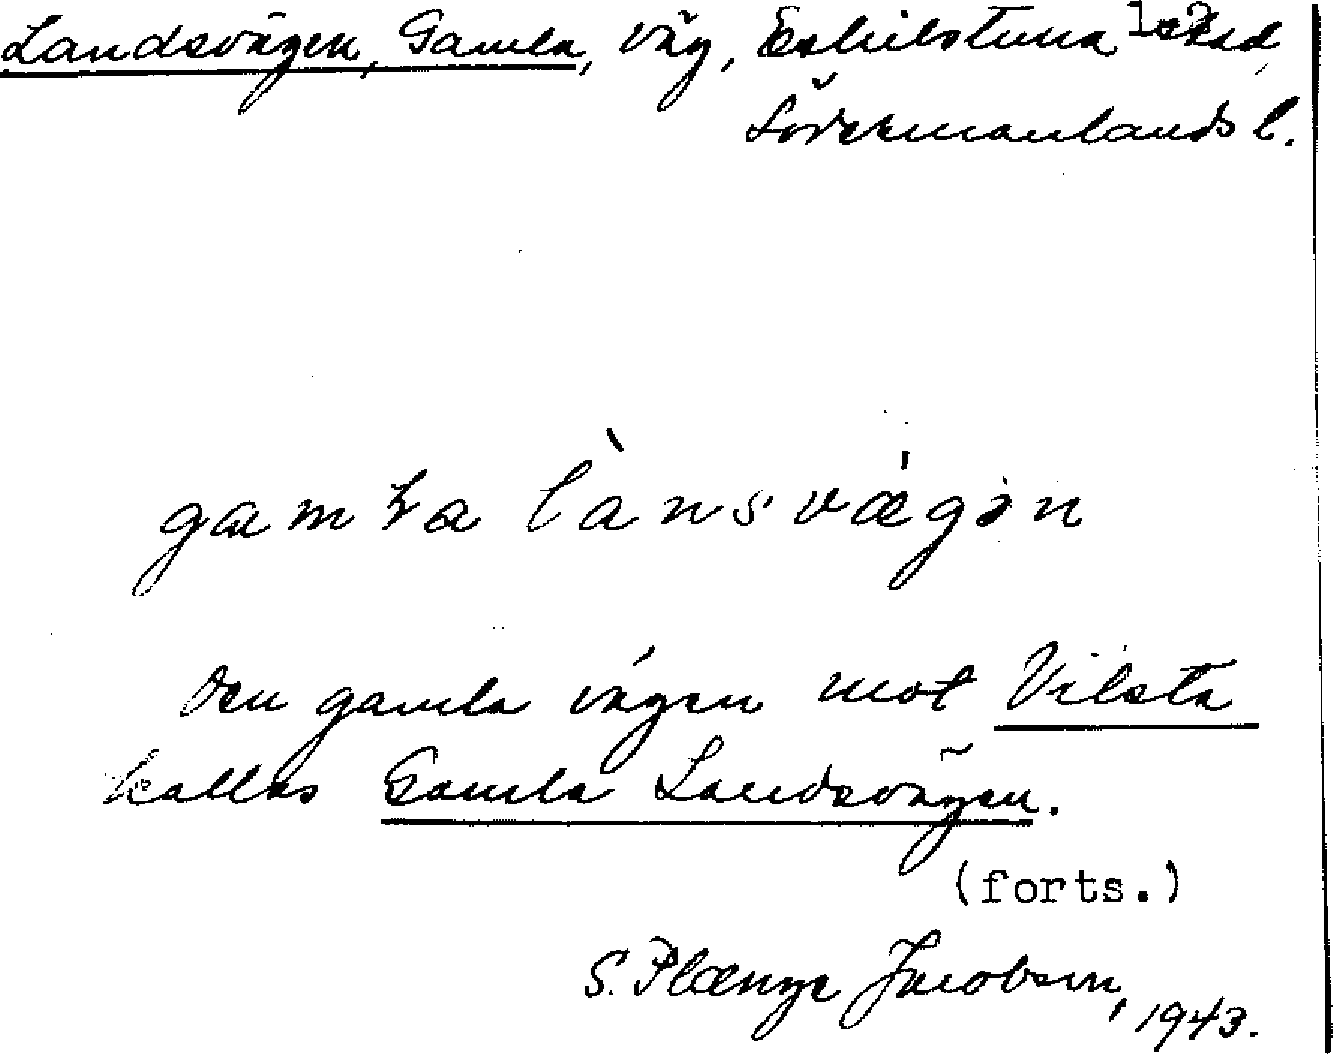 Landsvägen, Gamla, väg, Eskilstuna stad,
Södermanlands l.
gamla lànsvægən
Den gamla vägen mot Vilsta
kallas Gamla Landsvägen.
(forts.)
S. Plænge Jacobson, 1943.